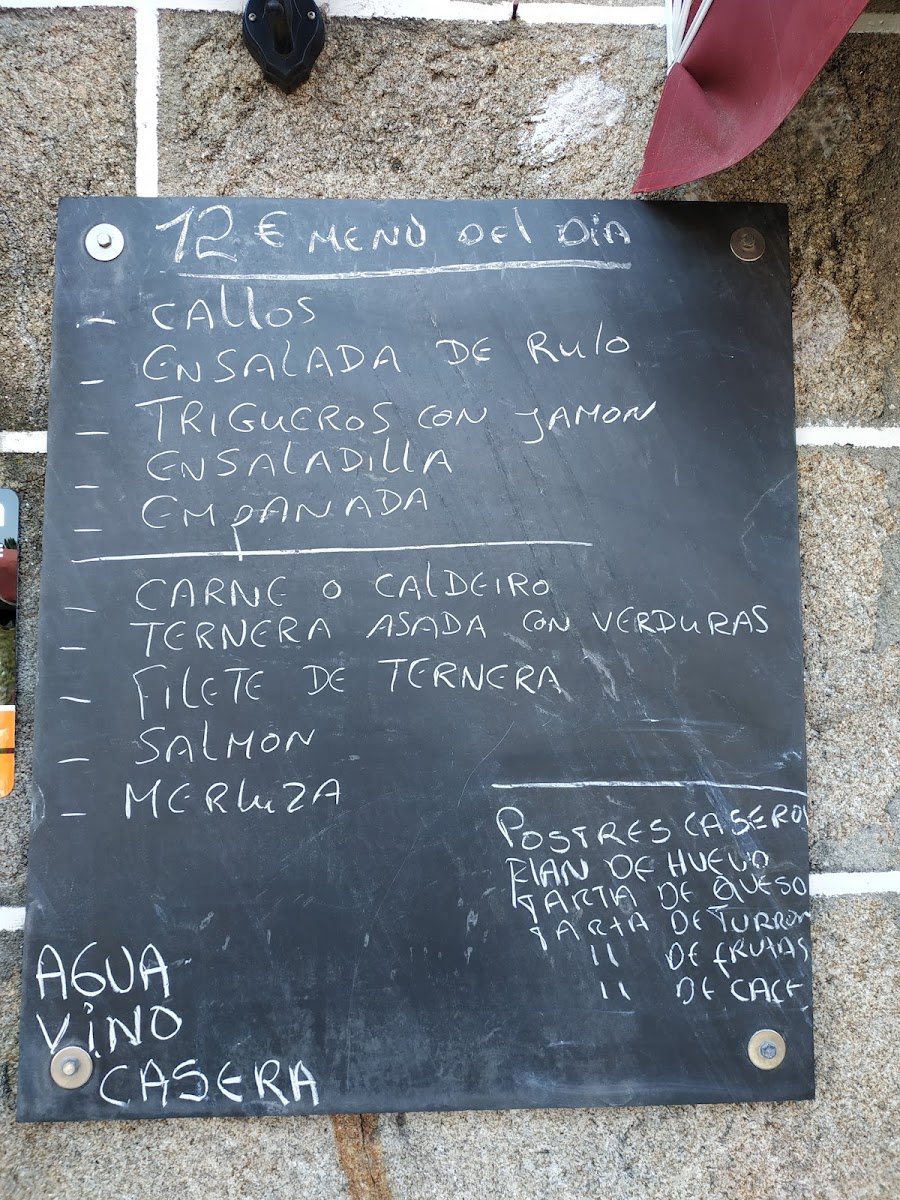 12 € MENÙ DEL DIA
- CALLOS
- ENSALADA DE RULO
- TRIGUEROS CON JAMON
- ENSALADILLA
- EMPANADA
- CARNE O CALDEIRO
- TERNERA ASADA CON VERDURAS
- FILETE DE TERNERA
- SALMON
- MERLUZA
POSTRES CASEROS
FLAN DE HUEVO
TARTA DE QUESO
TARTA DE TURRON
" DE FRUTAS
" DE CAFE
AGUA
VINO
CASERA